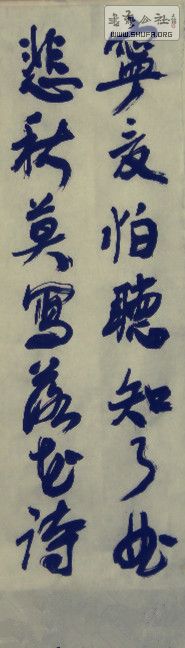 书艺公社
WWW.SHUFA.ORG
寧夏怕聽知了曲
悲秋莫寫落花詩